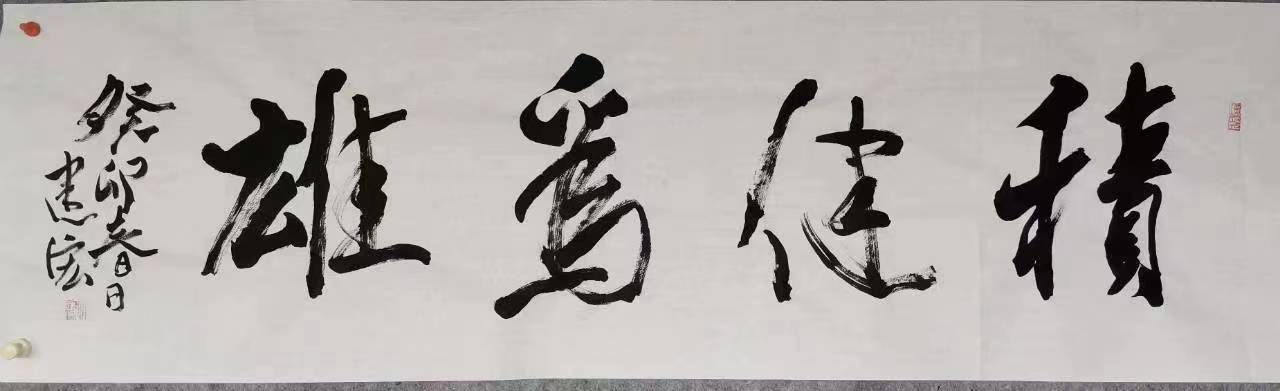 積健為雄
癸卯春日
惠宏